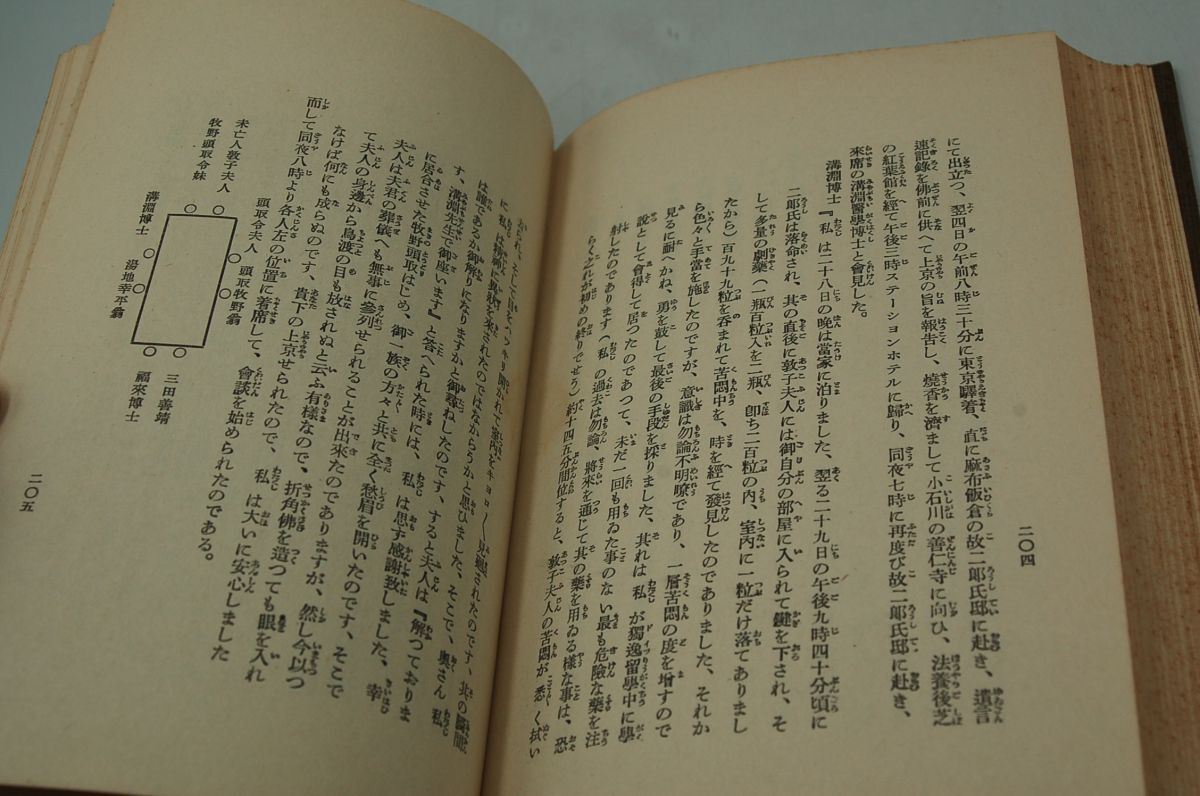 二〇四
にて出立つ、翌四日の午前八時三十分に東京驛着、直に麻布飯倉の故二郎氏邸に赴き、遺言
速記錄を佛前に供へて上京の旨を報告し、燒香を濟まして小石川の善仁寺に向ひ、法養後芝
の紅葉館を經て午後三時ステーションホテルに歸り、同夜七時に再度び故二郎氏邸に赴き、
來席の溝淵醫學博士と會見した。
溝淵博士『私は二十八日の晩は當家に泊りました、翌る二十九日の午後九時四十分頃に
二郎氏は落命され、其の直後に敦子夫人には御自分の部屋に入られて鍵を下され、そ
して多量の劇藥(一瓶百粒入を二瓶、卽ち二百粒の內、室內に一粒だけ落てありまし
たから)百九十九粒を呑まれて苦悶中を、時を經て發見したのでありました、それか
ら色々と手當を施したのですが、意識は勿論不明瞭であり、一層苦悶の度を增すので
見るに耐へかね、勇を鼓して最後の手段を採りました、其れは私が獨逸留學中に學
說として會得して居つたのであつて、未だ一回も用ゐた事のない最も危險な藥を注
射したのであります(私の過去は勿論、將來を通じて其の藥を用ゐる樣な事は、恐
らく之れが初めの終りでせう)約十四五分間位すると、敦子夫人の苦悶が悉く拭い
は誰であるか御解りになりますかと御尋ねしたのです、すると夫人は『解つておりま
す、溝淵先生で御座います』と答へられた時には、私は思ず感謝致しました、幸
に居合させた牧野頭取はじめ、御一族の方々と共に全く愁眉を開いたのです、そこで
夫人は夫君の葬儀へも無事に參列せられることが出來たのでありますが、然し今以つ
て夫人の身邊から鳥渡の目も放されぬと云ふ有樣なので、折角佛を造つても眼を入れ
なけば何にも成らぬのです、貴下の上京せられたので、私は大いに安心しました
而して同夜八時より各人左の位置に着席して、會談を始められたのである。
未亡人敦子夫人
牧野頭取令妹
頭取令夫人
頭取牧野翁
溝淵博士
湯地幸平翁
三田善靖
福來博士
二〇五